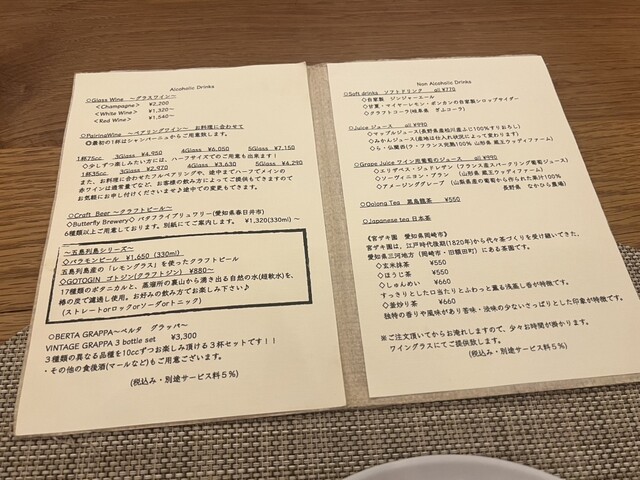 Alcoholic Drinks
◇Glass Wine ～グラスワイン～
＜Champagne＞ ¥2,200
＜White Wine＞ ¥1,320～
＜Red Wine＞ ¥1,540～
◇PairingWine ～ペアリングワイン～ お料理に合わせて
◎最初の1杯はシャンパーニュからご用意致します。
1杯75cc 3Glass ¥4,950 4Glass ¥6,050 5Glass ¥7,150
◇少しずつ楽しみたい方には、ハーフサイズでのご用意も出来ます！
1杯35cc 3Glass ¥2,970 4Glass ¥3,630 5Glass ¥4,290
また、お料理に合わせたフルペアリングや、途中までハーフでメインの
赤ワインは通常量でなど、お客様の飲み方によってご提供もできますので
お気軽にお申し付けくださいませ♪途中での変更もできます。
◇Craft Beer ～クラフトビール～
◇Butterfly Brewery◇ バタフライブリュワリー(愛知県春日井市)
6種類以上ご用意しております。別紙にてご案内します。 ¥1,320(330ml) ～
～五島列島シリーズ～
◇バラモンビール ¥1,650 (330ml)
五島列島産の「レモングラス」を使ったクラフトビール
◇GOTOGIN ゴトジン(クラフトジン) ¥880～
17種類のボタニカルと、蒸溜所の裏山から湧き出る自然の水(超軟水)を、
椿の炭で濾過し使用。お好みの飲み方でお楽しみ下さい♪
(ストレートorロックorソーダorトニック)
◇BERTA GRAPPA～ベルタ グラッパ～
VINTAGE GRAPPA 3 bottle set ¥3,300
３種類の異なる品種を10ccずつお楽しみ頂ける３杯セットです！！
・その他の食後酒(マールなど)もご用意ございます。
(税込み・別途サービス料５％)
Non Alcoholic Drinks
◇Soft drinks ソフトドリンク all¥770
◇自家製 ジンジャーエール
◇甘夏・マイヤーレモン・ポンカンの自家製シロップサイダー
◇クラフトコーラ(岐阜県 ぎふコーラ)
◇Juice ジュース all ¥990
◇アップルジュース(長野県産松川産ふじ100%すりおろし)
◇みかんジュース(産地は仕入れ状況によって変わります)
◇ら・仏蘭西(ラ・フランス完熟100% 山形県 蔵王ウッディファーム)
◇Grape Juice ワイン用葡萄のジュース all ¥990
◇エリザベス・シュドレザン (フランス産スパークリング葡萄ジュース)
◇ソーヴィニヨン・ブラン (山形県 蔵王ウッディファーム)
◇アメージンググレープ (山形県産の葡萄から作られた果汁100%
長野県 なかひら農場)
◇Oolong Tea 烏龍茶 ¥550
◇Japanese tea 日本茶
《宮ザキ園 愛知県岡崎市》
宮ザキ園は、江戸時代後期(1820年)から代々茶づくりを受け継いできた、
愛知県三河地方（岡崎市・旧額田町）にある茶園です。
◇玄米抹茶 ¥550
◇ほうじ茶 ¥550
◇しゅんめい ¥660
すっきりとした口当たりとふわっと薫る浅蒸し香が特徴です。
◇釜炒り茶 ¥660
独特の香りや風味があり苦味・渋味の少ないさっぱりとした印象が特徴です。
※ご注文頂いてからお淹れしますので、少々お時間が掛かります。
ワイングラスにてご提供致します。
(税込み・別途サービス料５％)